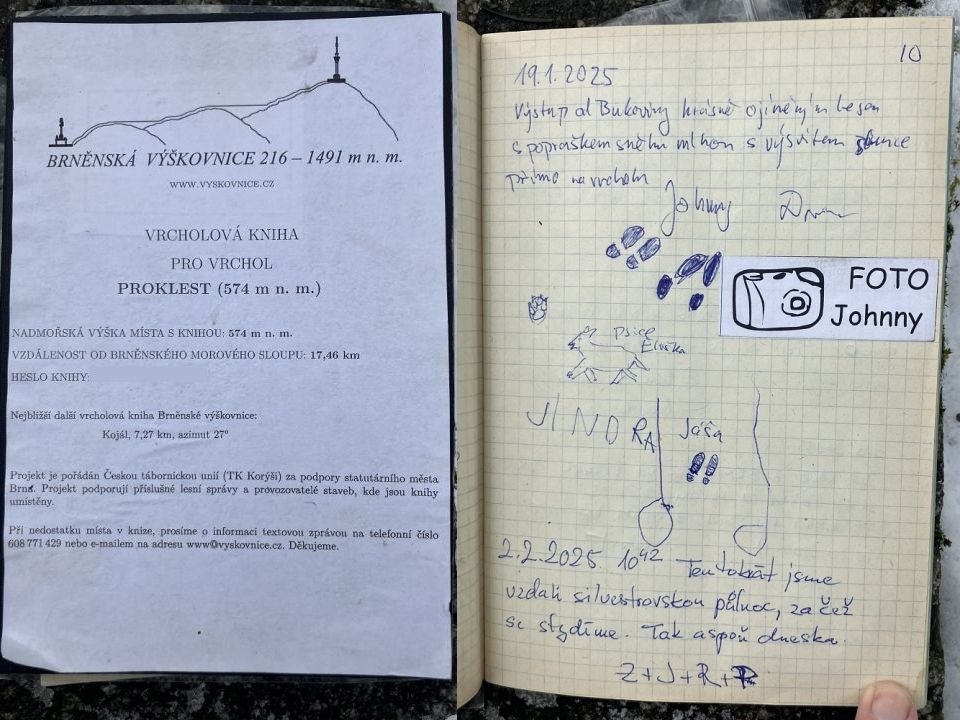 BRNĚNSKÁ VÝŠKOVNICE 216 – 1491 m n. m.
WWW.VYSKOVNICE.CZ
VRCHOLOVÁ KNIHA
PRO VRCHOL
PROKLEST (574 m n. m.)
NADMOŘSKÁ VÝŠKA MÍSTA S KNIHOU: 574 m n. m.
VZDÁLENOST OD BRNĚNSKÉHO MOROVÉHO SLOUPU: 17,46 km
HESLO KNIHY:
Nejbližší další vrcholová kniha Brněnské výškovnice:
Kojál, 7,27 km, azimut 27°
Projekt je pořádán Českou tábornickou unií (TK Korýši) za podpory statutárního města
Brna. Projekt podporují příslušné lesní správy a provozovatelé staveb, kde jsou knihy
umístěny.
Při nedostatku místa v knize, prosíme o informaci textovou zprávou na telefonní číslo
608 771 429 nebo e-mailem na adresu www@vyskovnice.cz. Děkujeme.
10
19.1.2025
Výstup od Bukoviny krásně ojíněným lesem
s popraškem sněhu mlhou s výsvitem slunce
přímo na vrcholu
Johnny
FOTO
Johnny
psice
Eliška
JÍNORA
Jáša
2.2.2025 10⁴² Tentokrát jsme
vzdali silvestrovskou půlnoc, za čež
se stydíme. Tak aspoň dneska.
Z+J+R+R